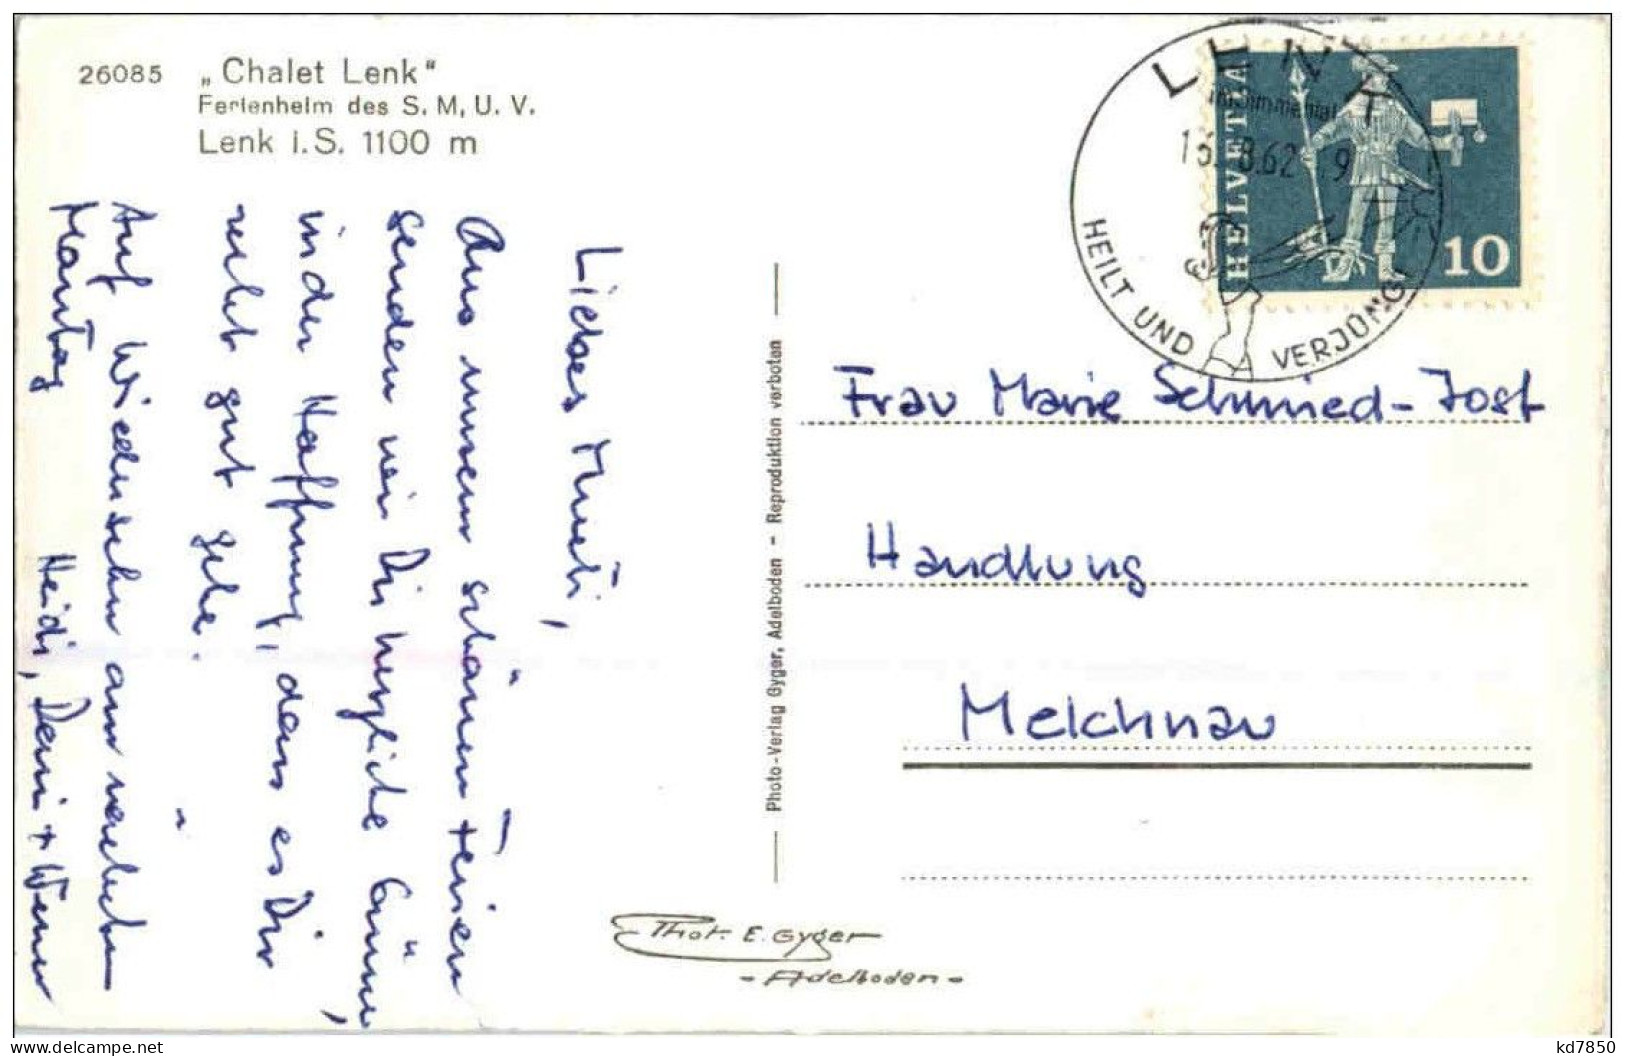 26085 „Chalet Lenk"
Ferienheim des S. M, U. V.
Lenk i.S. 1100 m
Liebes Mueti,
Aus unsern schönen Ferien
senden wir Dir herzliche Grüsse,
in der Hoffnung, dass es Dir
recht gut gehe.
Auf Wiedersehn am nächsten
Montag
Heidi, Dani + Werner
Photo-Verlag Gyger, Adelboden - Reproduktion verboten
Phot. E. Gyger
- Adelboden -
LENK
im Simmental
.8.62 9
HEILT UND VERJÜNGT
HELVETIA
10
Frau Marie Schmied-Jost
Handlung
Melchnau
delcampe.net
kd7850